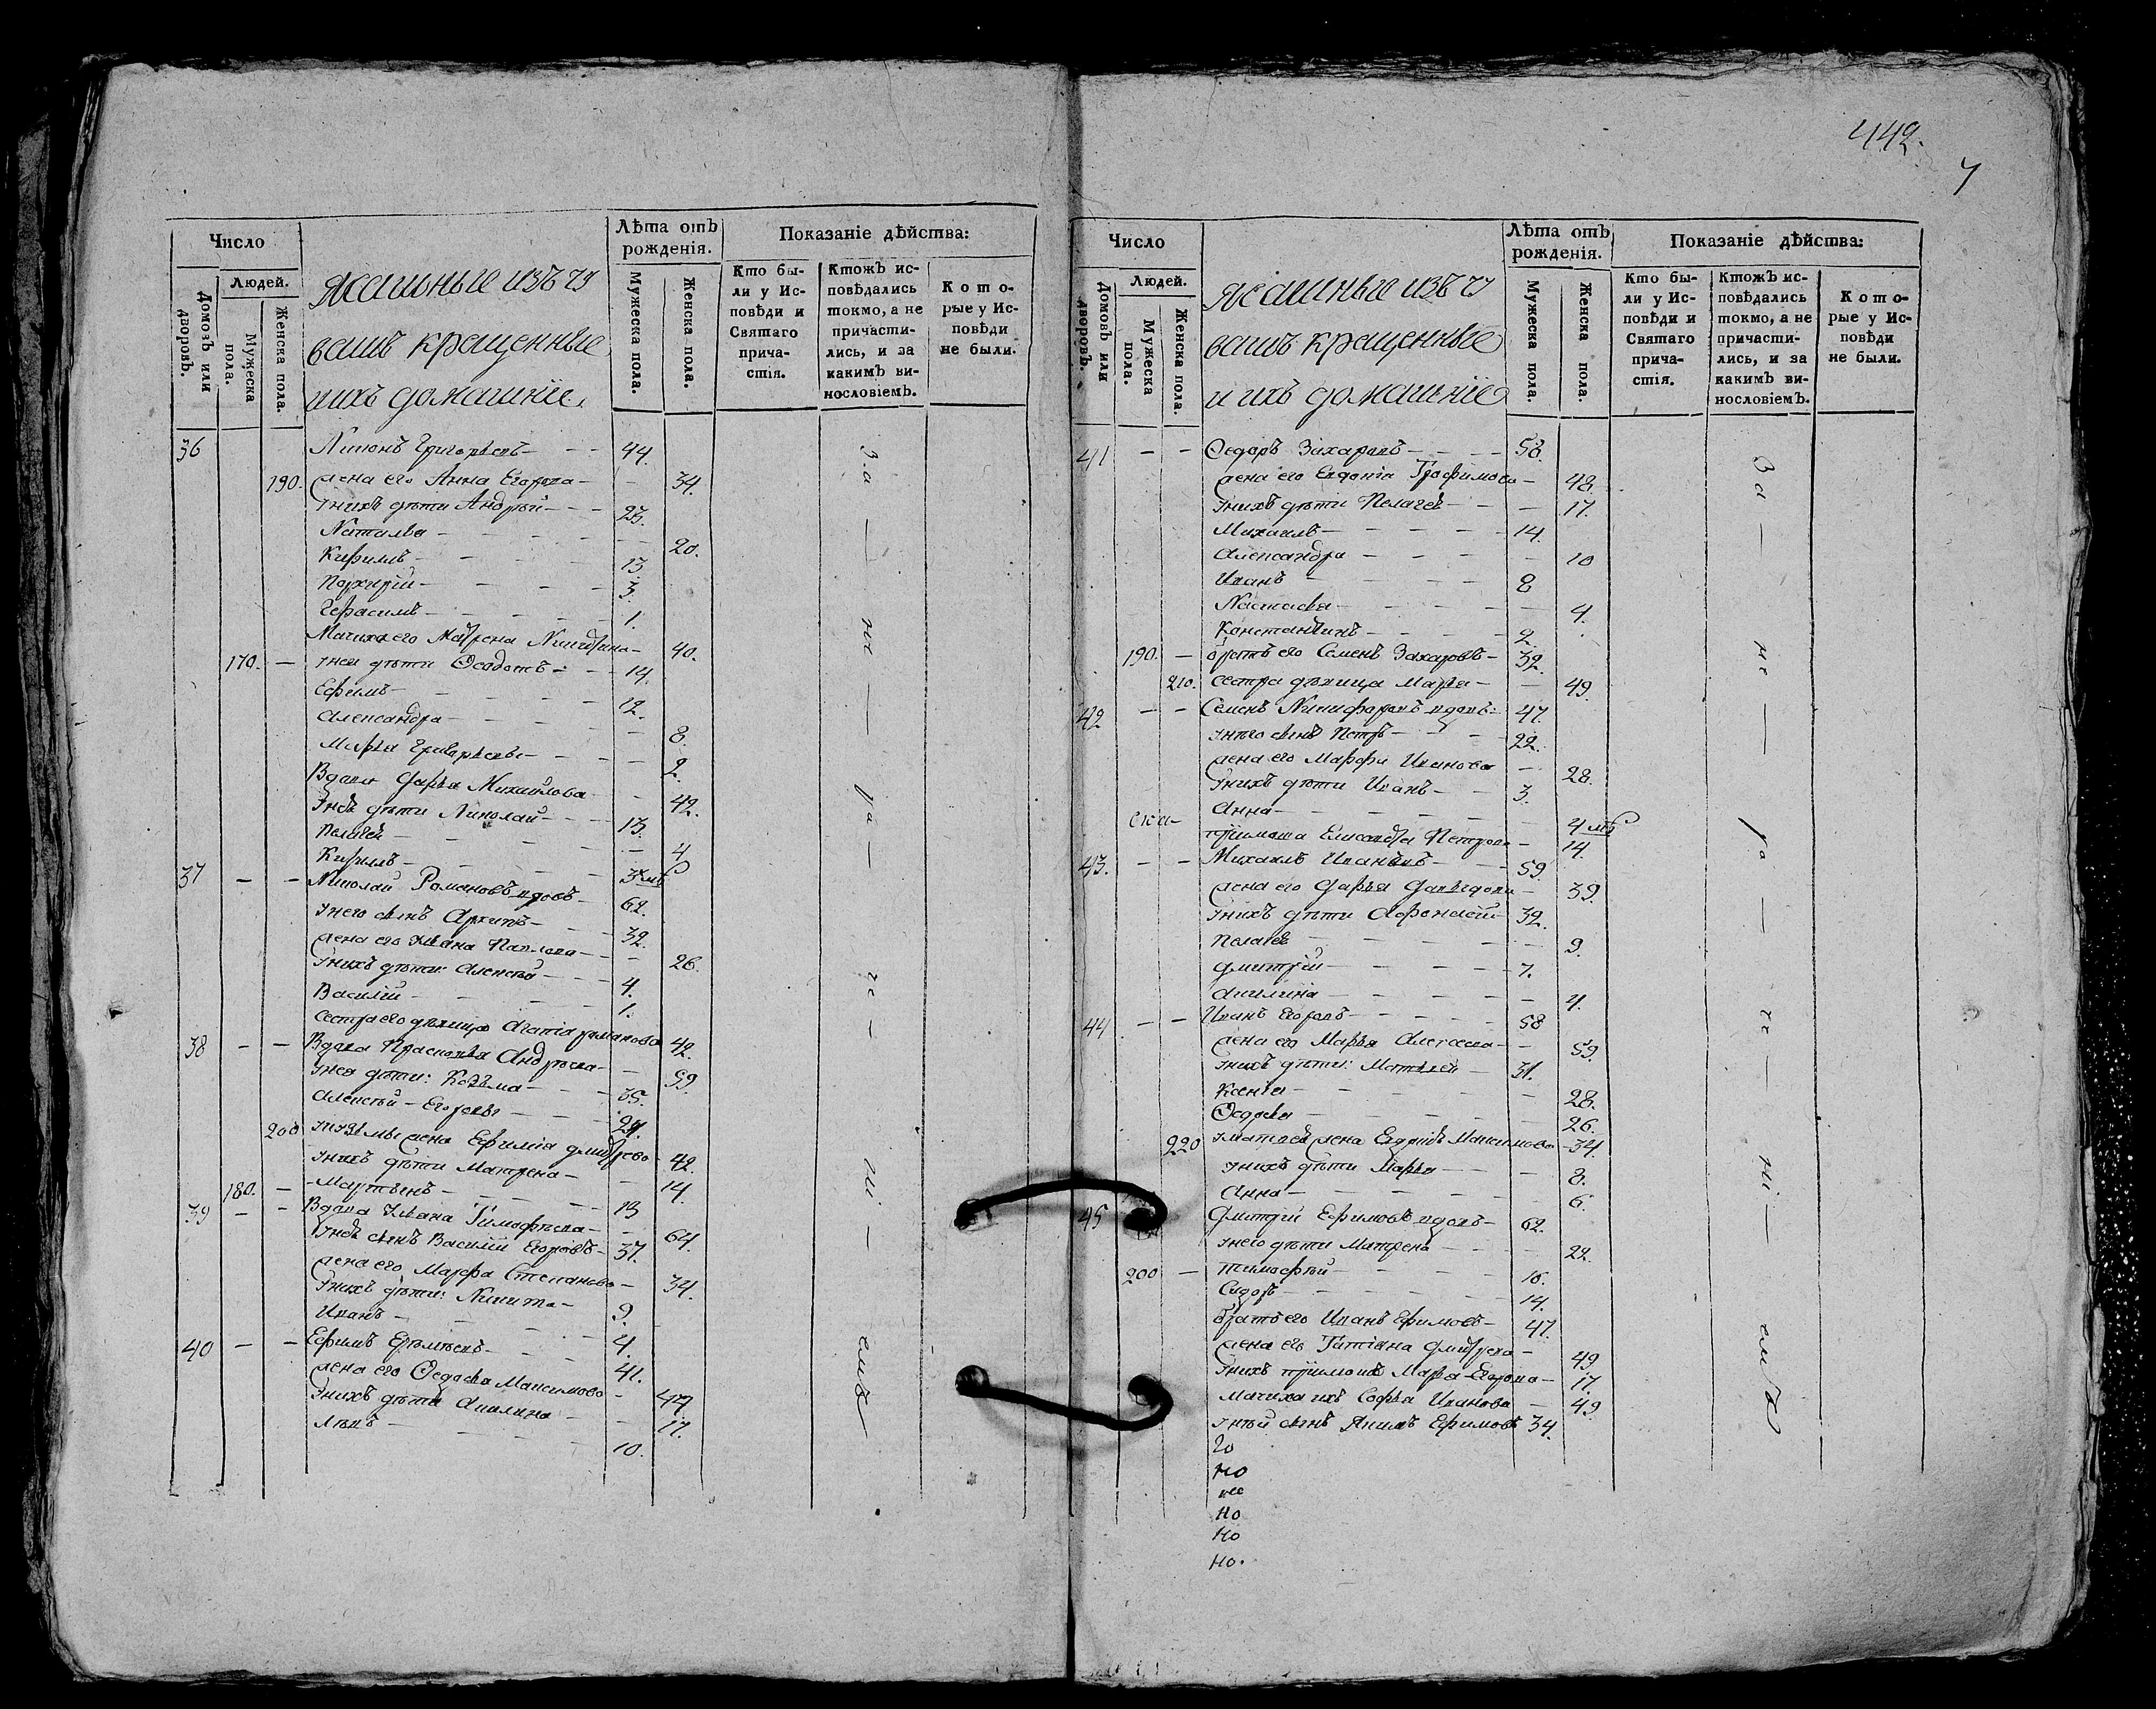 442.
7
Число
Людей.
Домовъ или дворовъ.
Мужеска пола.
Женска пола.
Ясашные изъ чу
вашъ крещенные
и ихъ домашніе
Лѣта отъ рожденія.
Мужеска пола.
Женска пола.
Показаніе дѣйства:
Кто бы-
ли у Ис-
повѣди и
Святаго
прича-
стія.
Ктожъ ис-
повѣдались
токмо, а не
причасти-
лись, и за
какимъ ви-
нословіемъ.
Кото-
рые у Ис-
повѣди
не были.
36 Григорьевъ 44.
190. жена его Анна Егорова 34.
у нихъ дѣти Андрей 23.
Наталья 20.
Кирилъ 13
3.
Герасимъ 1.
Мачиха его Матрена 40.
170. у нея дѣти Ѳеодотъ 14.
Ефимъ 12.
Александра 8.
Марья Григорьева 2.
Вдова Дарья Михайлова 42.
у ней дѣти Николай 13.
Пелагея 4
Кирилъ 3
37 Николай Романовъ вдовъ 62.
у него сынъ Архипъ 32.
жена его Ульяна Павлова 26.
у нихъ дѣти: Алексѣй 4.
Василій 1.
сестра его дѣвица Агапія Романова 42.
38 Вдова Прасковья Андреева 59.
у нея дѣти: Козьма 35.
Алексѣй Егоровы 24.
200 жена Ефимія Дмитрева 42.
у нихъ дѣти Матрена 14.
180. Мартынъ 13
39 Вдова Ульяна Тимофѣева 64.
у ней сынъ Василій Егоровъ 37.
жена его Марфа Степанова 34.
у нихъ дѣти: Никита 9.
Иванъ 4.
40 Ефимъ 41.
жена его Ѳедосья Максимова 47
у нихъ дѣти Акилина 17.
10.
за не
емъ
Число
Людей.
Домовъ или дворовъ.
Мужеска пола.
Женска пола.
Ясашные изъ чу
вашъ крещенные
и ихъ домашніе
Лѣта отъ рожденія.
Мужеска пола.
Женска пола.
Показаніе дѣйства:
Кто бы-
ли у Ис-
повѣди и
Святаго
прича-
стія.
Ктожъ ис-
повѣдались
токмо, а не
причасти-
лись, и за
какимъ ви-
нословіемъ.
Кото-
рые у Ис-
повѣди
не были.
41 Ѳедоръ Захаровъ 58.
жена его Евдокія Трофимова 48.
у нихъ дѣти Пелагея 17.
Михаилъ 14.
Александра 10
Иванъ 8
Настасья 4.
Константинъ 2.
190. братъ его Семенъ Захаровъ 32.
210. сестра дѣвица Марья 49.
42 Семенъ Никифоровъ вдовъ 47.
у него сынъ Петръ 22.
жена его Марфа Иванова 28.
у нихъ дѣти Иванъ 3.
Анна 4
Петрова 14.
43. Михаилъ Ивановъ 59.
жена его Дарья 39.
у нихъ дѣти Афанасій 32.
Пелагея 9.
Дмитрій 7.
Акилина 4.
44 Иванъ Егоровъ 58
жена его Марья Алексеева 59.
у нихъ дѣти: Матвей 31.
Ксенія 28.
Ѳедосья 26.
220 у Матвея жена Максимова 34.
у нихъ дѣти Марья 8.
Анна 6.
45 Дмитрій Ефимовъ вдовъ 62.
у него дѣти Матрена 22.
200 Тимофѣй 16.
Сидоръ 14.
братъ его Иванъ Ефимовъ 47.
жена его Татіана Дмитрева 49
у нихъ Марья Егорова 17.
мачиха ихъ Софья Иванова 49
у ней сынъ Ефимовъ 34.
за не